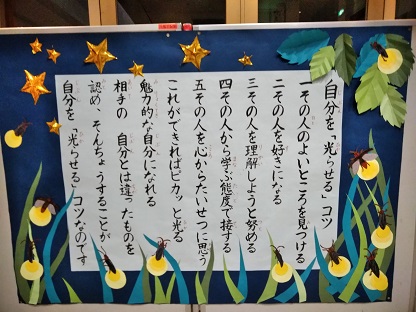 自分を「光らせる」コツ
一その人のよいところを見つける
二その人を好きになる
三その人を理解しようと努める
四その人から学ぶ態度で接する
五その人を心からたいせつに思う
これができればピカッと光る
魅力的な自分になれる
相手の　自分とは違ったものを
認め、そんちょうすることが
自分を「光らせる」コツなのです